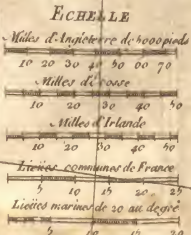 ECHELLE
Milles d'Angleterre de 5000 pieds
10 20 30 40 50 60 70
Milles d'Ecosse
10 20 30 40 50
Milles d'Irlande
10 20 30 40 50
Lieües communes de France
5 10 15 20 25
Lieües marines de 20 au degré
5 10 15 20